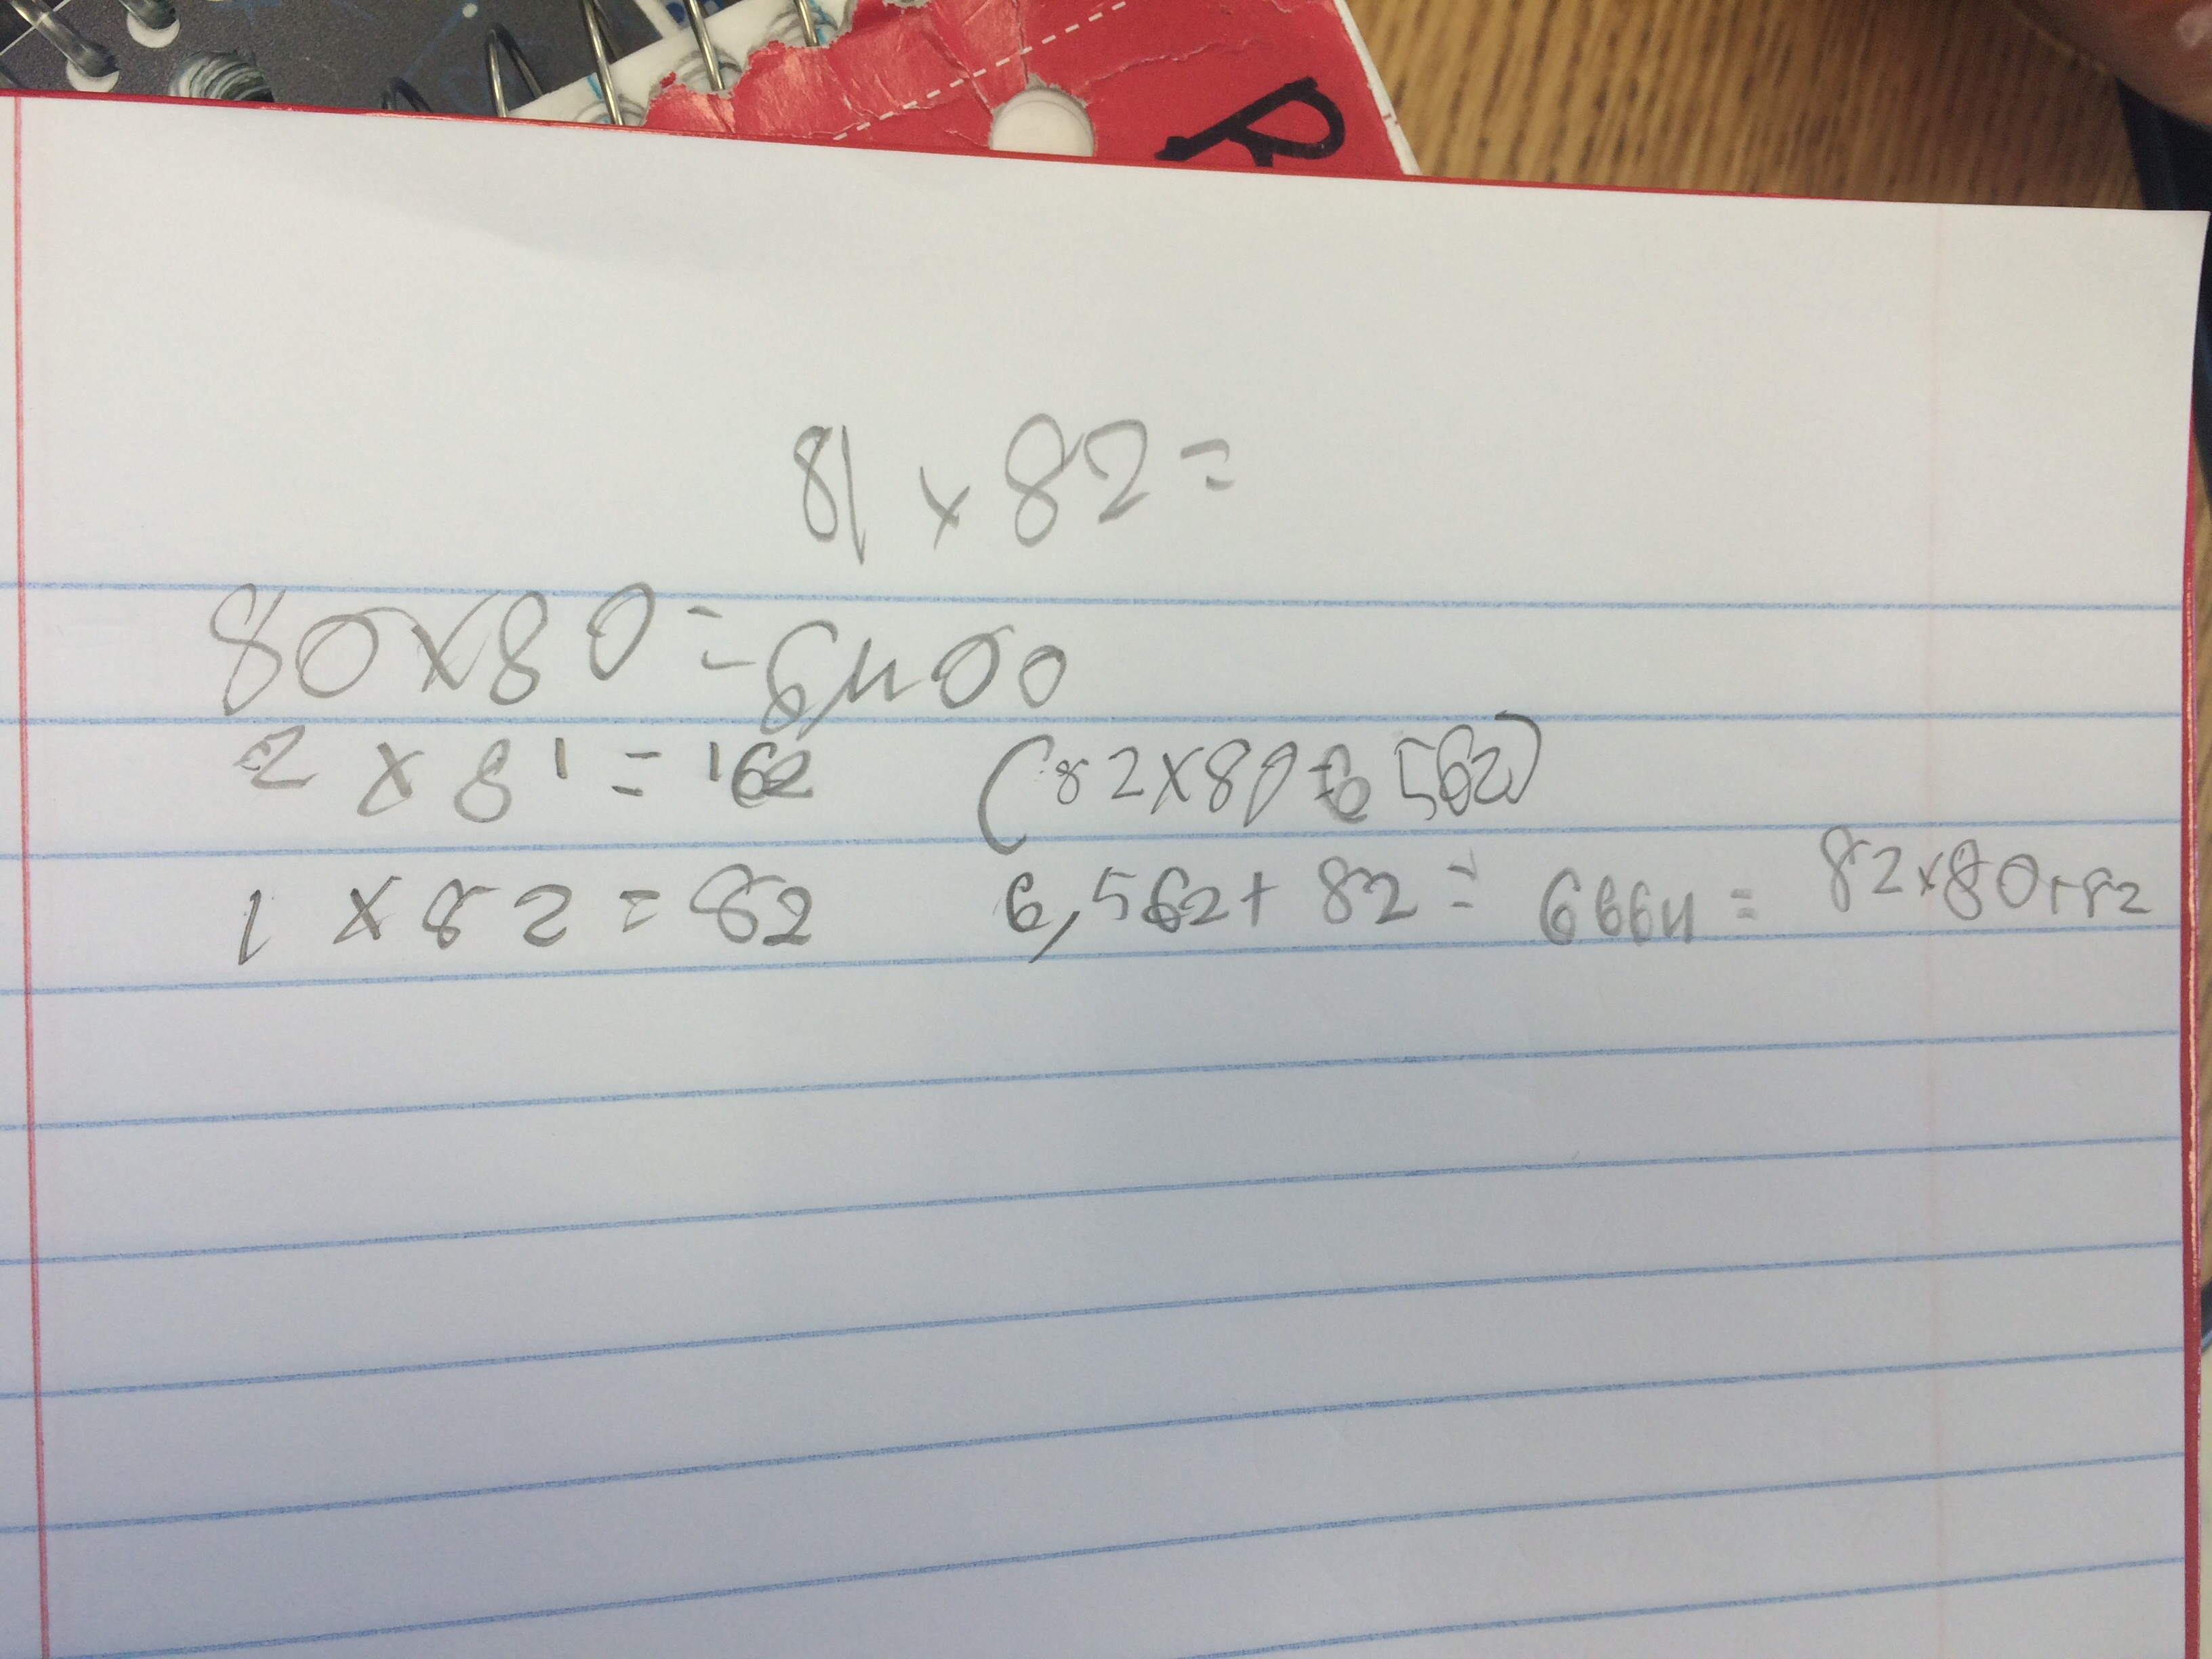 R
81 x 82 =
80 x 80 = 6400
2 x 81 = 162 (82 x 80 = 6562)
1 x 82 = 82 6,562 + 82 = 6664 = 82 x 80 + 82